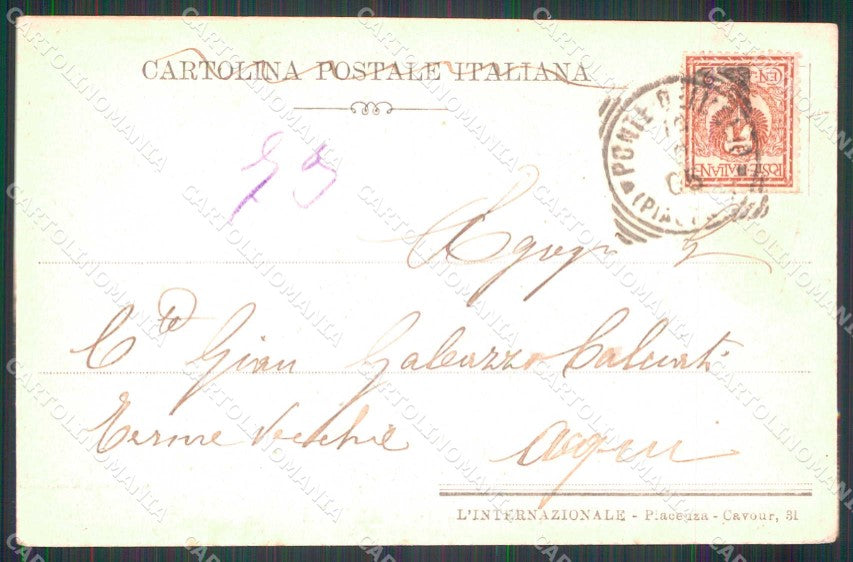 CARTOLINA POSTALE ITALIANA
POSTE ITALIANE
CEN
PONTE D
05
(PIAC
C.te Gian Galeazzo Calciati
Terme Vecchie Acqui
L'INTERNAZIONALE - Piacenza - Cavour, 31
CARTOLINOMANIA